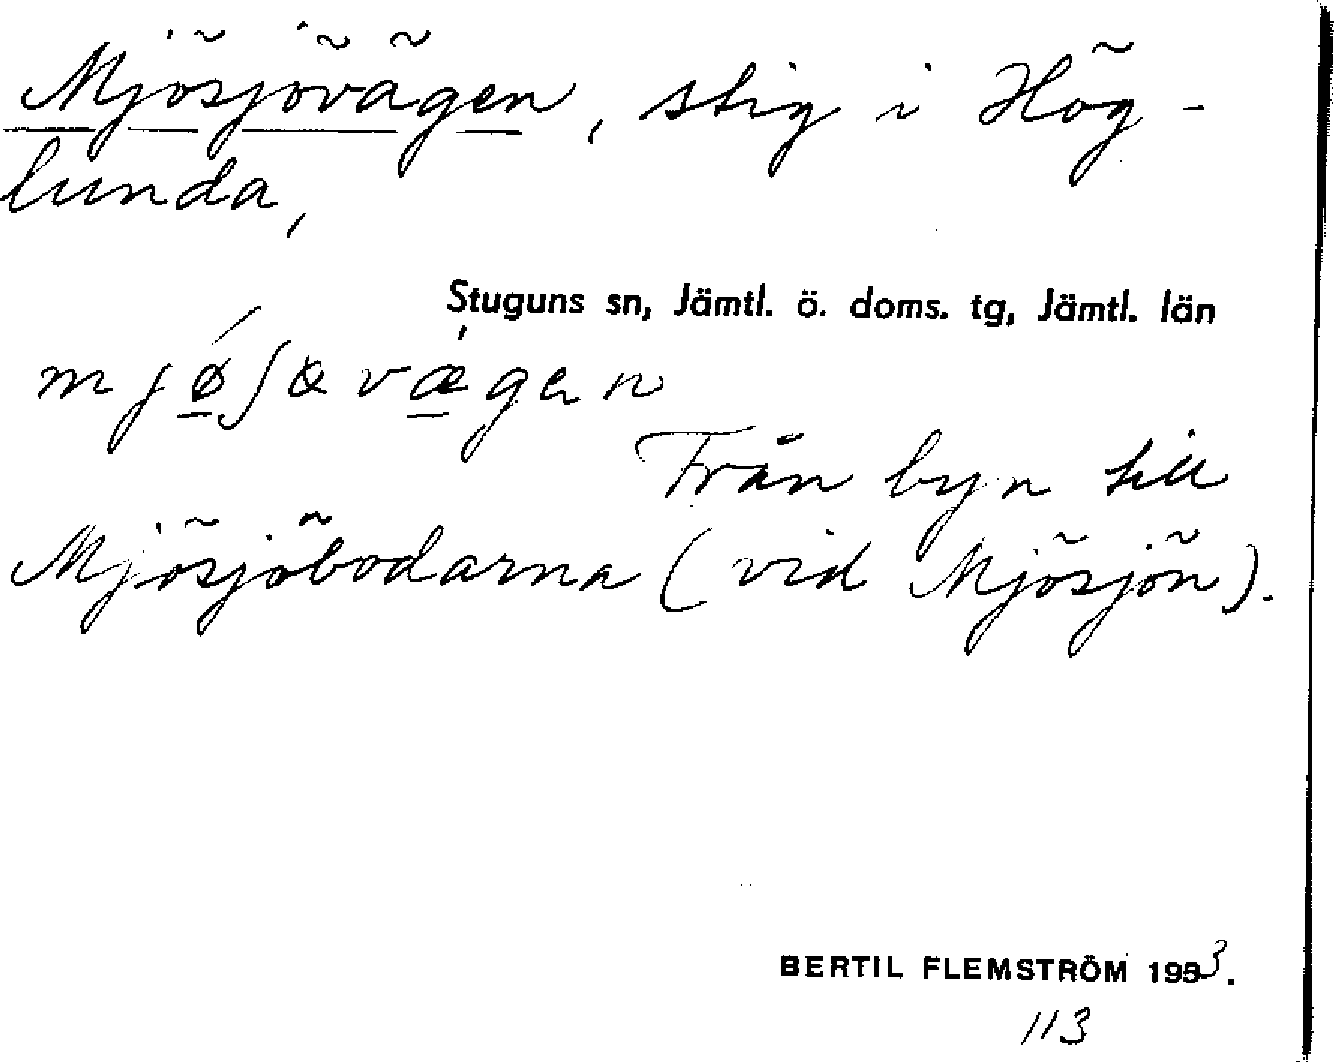 Mjösjövägen, stig i Hög-
lunda,
Stuguns sn, Jämtl. ö. doms. tg, Jämtl. län
mjǿ̲ʃœvæ̲̀gen
Från byn till
Mjösjöbodarna (vid Mjösjön).
BERTIL FLEMSTRÖM 1953.
113